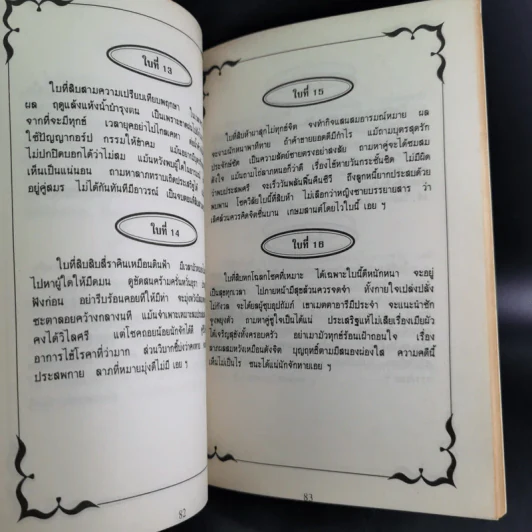 ใบที่ 13
ใบที่สิบสามความเปรียบเทียบพฤกษา
ผล ฤดูแล้งแห้งน้ำบำรุงตน เป็นเพราะ
จากที่จะมีทุกข์ เวลายุคอย่าไปไกลเคหา
ใช้ปัญญากอร์ป กรรมให้ช้าคม
ไม่ปกปิดบอกได้ว่าไม่สม แม้นหวังพบผู้ใด
เห็นเป็นแน่นอน ถามหาลาภทราบเถิดประเสริฐ
อยู่คู่สมร ไม่ได้กันทันทีมีอาวรณ์
ใบที่ 14
ใบที่สิบสิบสี่ราคินเหมือนดินฟ้า
ไปหาผู้ใดให้มีดมน ดูขัดสนคร้ามครั่น
ฟังก่อน อย่ารีบร้อนคอยทีให้มีท่า
ชะตาลอยคว้างกลางนที แม้นจำเพาะ
คงได้วิไลศรี แต่โชคถอยน้อยนักจักได้ดี
อาการไข้โรคาที่ว่ามาก ส่วนวิบากชี้บ่งว่า
ประสพกาย ลาภที่หมายมุ่งดีไม่มี เอย ฯ
82
ใบที่ 15
ใบที่สิบห้าผาสุกไม่ทุกข์จิต จงทำกิจแสนสมอารมณ์หมาย ผล
จะงามนักหนาพาที่ทาย ถ้าค้าขายยอดดีมีกำไร แม้ถามบุตรสุดรัก
ประจักษ์ชัด เป็นความสัตย์ชายตรงอย่าสงสัย ถามหาคู่จะได้ชมสม
ดังใจ แม้ถามไข้ลาภหนอก็ว่าดี เรื่องไร้หายวันกระชั้นชิด ไม่มีผิด
ว่าพบประสพศรี จะเร็ววันพลันฟื้นคืนชีวี ถึงลูกหนี้ยากประสมด้วย
พบพาน โชควิสัยใบนี้ที่สืบห้า ไม่เลือกว่าหญิงชายบรรยายสาร ว่า
เลิศล้วนควรคิดจิตชื่นบาน เกษมสานต์โดยไวใบนี้ เอย ฯ
ใบที่ 16
ใบที่สิบหกโฉลกโชคที่เหมาะ ได้เฉพาะใบนี้ดีหนักหนา จะอยู่
เป็นสุขทุกเวลา ไปภายหน้ามีสุขล้วนควรจดจำ ทั้งกายใจเปล่งปลั่ง
ไม่กังวล จะได้ยลผู้ชุบอุปถัมภ์ เขาเมตตาอารีมีประจำ จะแนะนำชัก
จูงพยุงตัว ถามหาคู่ชูใจเป็นได้แน่ ประเสริฐแท้ไม่เสียงเรื่องเมียผัว
ได้เจริญสุขังทั้งครอบครัว อย่าเมามัวทุกข์ร้อนเฝ้าถอนใจ เรื่อง
ลาภผลสมหวังเหมือนดังจิต บุญฤทธิ์ตามมีสนองผ่องใส ความคดีนี้
เห็นไม่เป็นไร ชนะได้แน่นักจักทายเอย ฯ
83